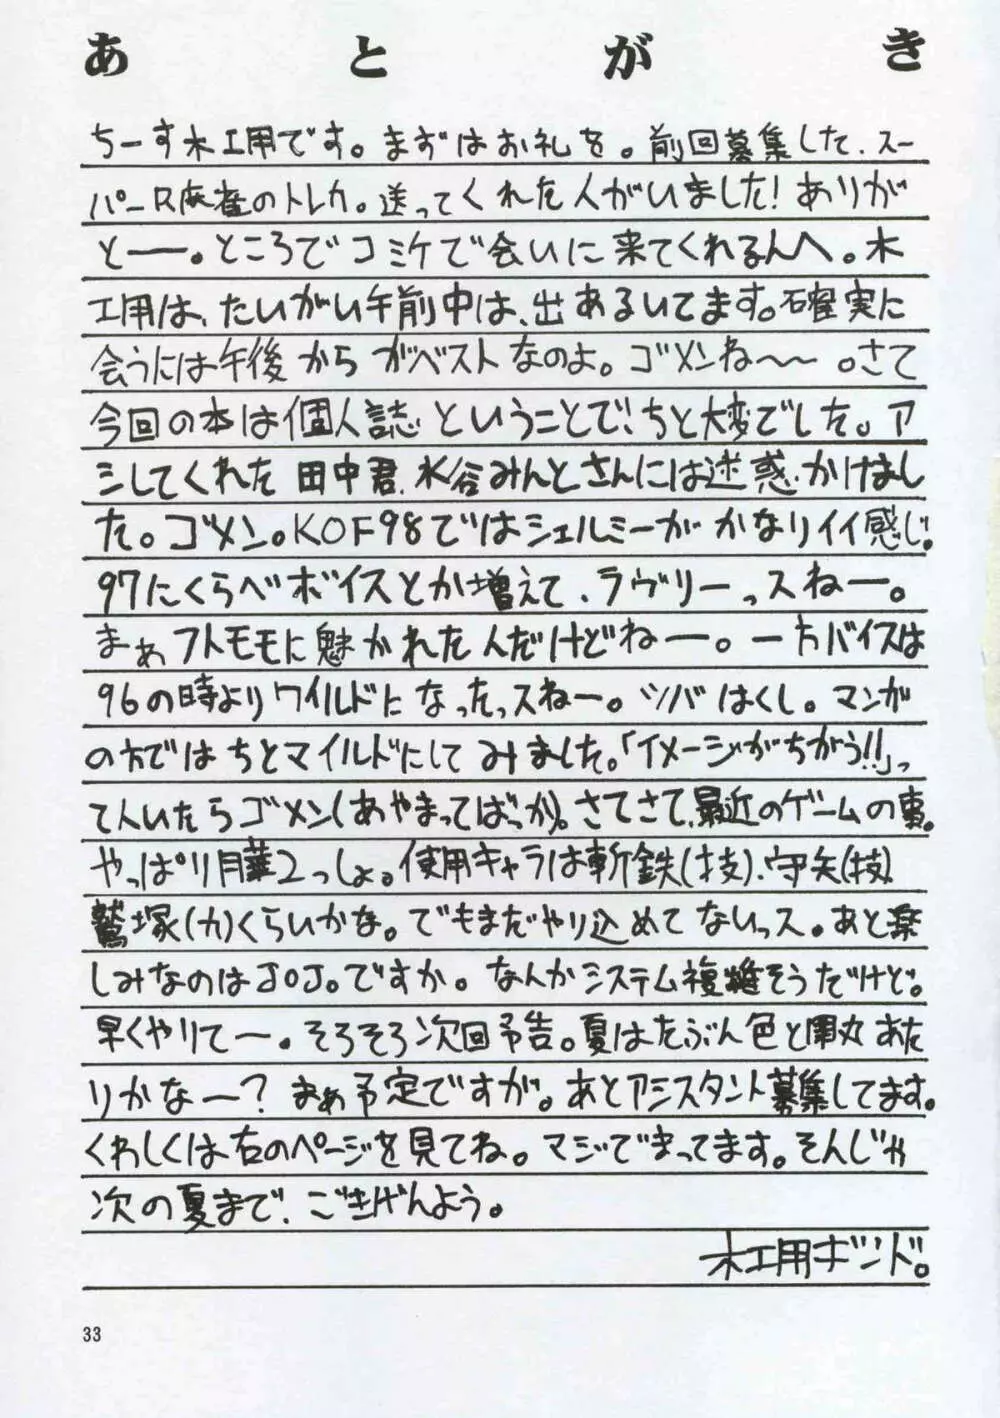 あとがき
ちーす木工用です。まずはお礼を。前回募集した、スー
パーR麻雀のトレカ。送ってくれた人がいました!ありが
とーー。ところでコミケで会いに来てくれるんへ。木
工用は、たいがい午前中は、出あるいてます。確実に
会うには午後からがベストなのよ。ゴメンね〜〜。さて
今回の本は個人誌ということで、ちと大変でした。ア
シしてくれた田中君、水谷みんとさんには迷惑かけまし
た。ゴメン。KOF98ではシェルミーがかなりイイ感じ。
97にくらべボイスとか増えて、ラヴリーっスねー。
まぁフトモモに魅かれた人だけどねー。一方バイスは
96の時よりワイルドになったっスねー。ツバはくし。マンガ
の方ではちとマイルドにしてみました。「イメージがちがう!!」っ
て人いたらゴメン(あやまってばっか)。さてさて、最近のゲームの事。
やっぱり月華2っしょ。使用キャラは斬鉄(技)、守矢(技)、
鷲塚(力)くらいかな。でもまだやり込めてないっス。あと楽
しみなのはJOJO。ですか。なんかシステム複雑そうだけど。
早くやりてー。そろそろ次回予告。夏はたぶん色と蘭丸あた
りかなー?まぁ予定ですが。あとアシスタント募集してます。
くわしくは右のページを見てね。マジでまってます。そんじゃ
次の夏まで、ごきげんよう。
木工用ボンド。
33